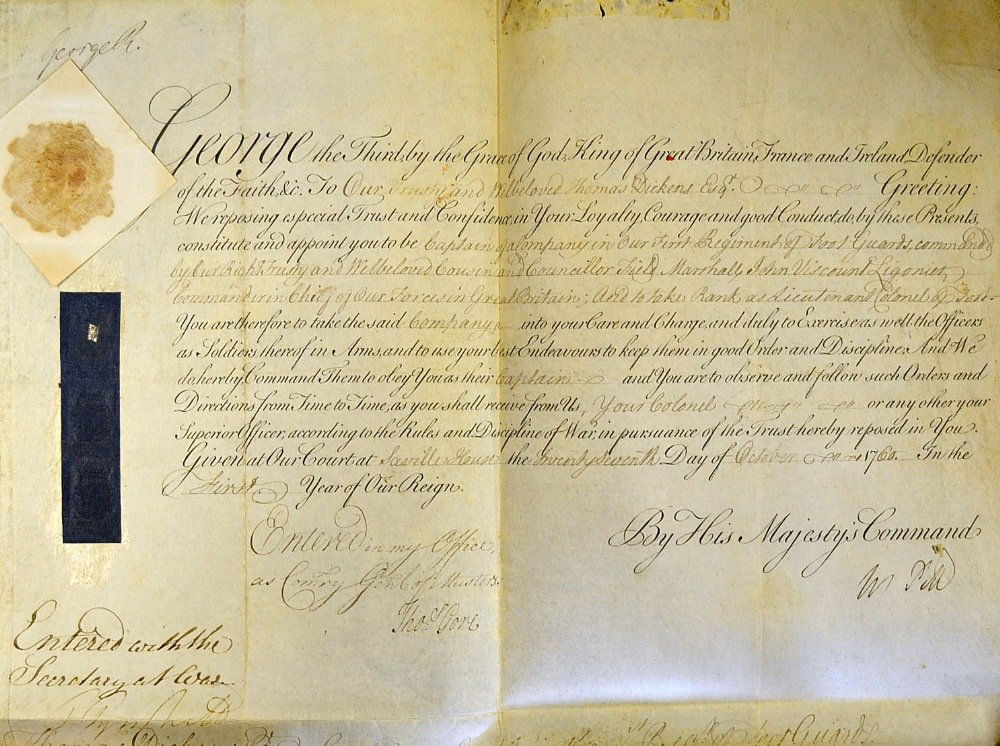 George R.
George the Third, by the Grace of God, King of Great Britain, France and Ireland, Defender
of the Faith &c. To Our Trusty and Welbeloved Thomas Dickens Esqr. Greeting:
We reposing especial Trust and Confidence in Your Loyalty, Courage and good Conduct, do, by these Presents,
constitute and appoint you to be Captain of a Company in Our First Regiment of Foot Guards, commanded
by Our Right trusty and Welbeloved Cousin and Councillor Field Marshall John Viscount Ligonier,
Commander in Chief of Our Forces in Great Britain; And to take Rank as Lieutenant Colonel of Foot.
You are therefore to take the said Company into your Care and Charge, and duly to Exercise as well the Officers
as Soldiers thereof in Arms, and to use your best Endeavours to keep them in good Order and Discipline; And We
do hereby Command Them to obey You as their Captain and You are to observe and follow such Orders and
Directions from Time to Time, as you shall receive from Us, Your Colonel or any other your
Superior Officer, according to the Rules and Discipline of War, in pursuance of the Trust hereby reposed in You.
Given at Our Court at Saville House the Twenty Seventh Day of October 1760. In the
First Year of Our Reign.
By His Majesty's Command
W Pitt
Entered in my Office
as Com̄ry Gen̄l of Musters.
Thos. Gore
Entered with the
Secretary at War
Thomas Dickens
Foot Guards